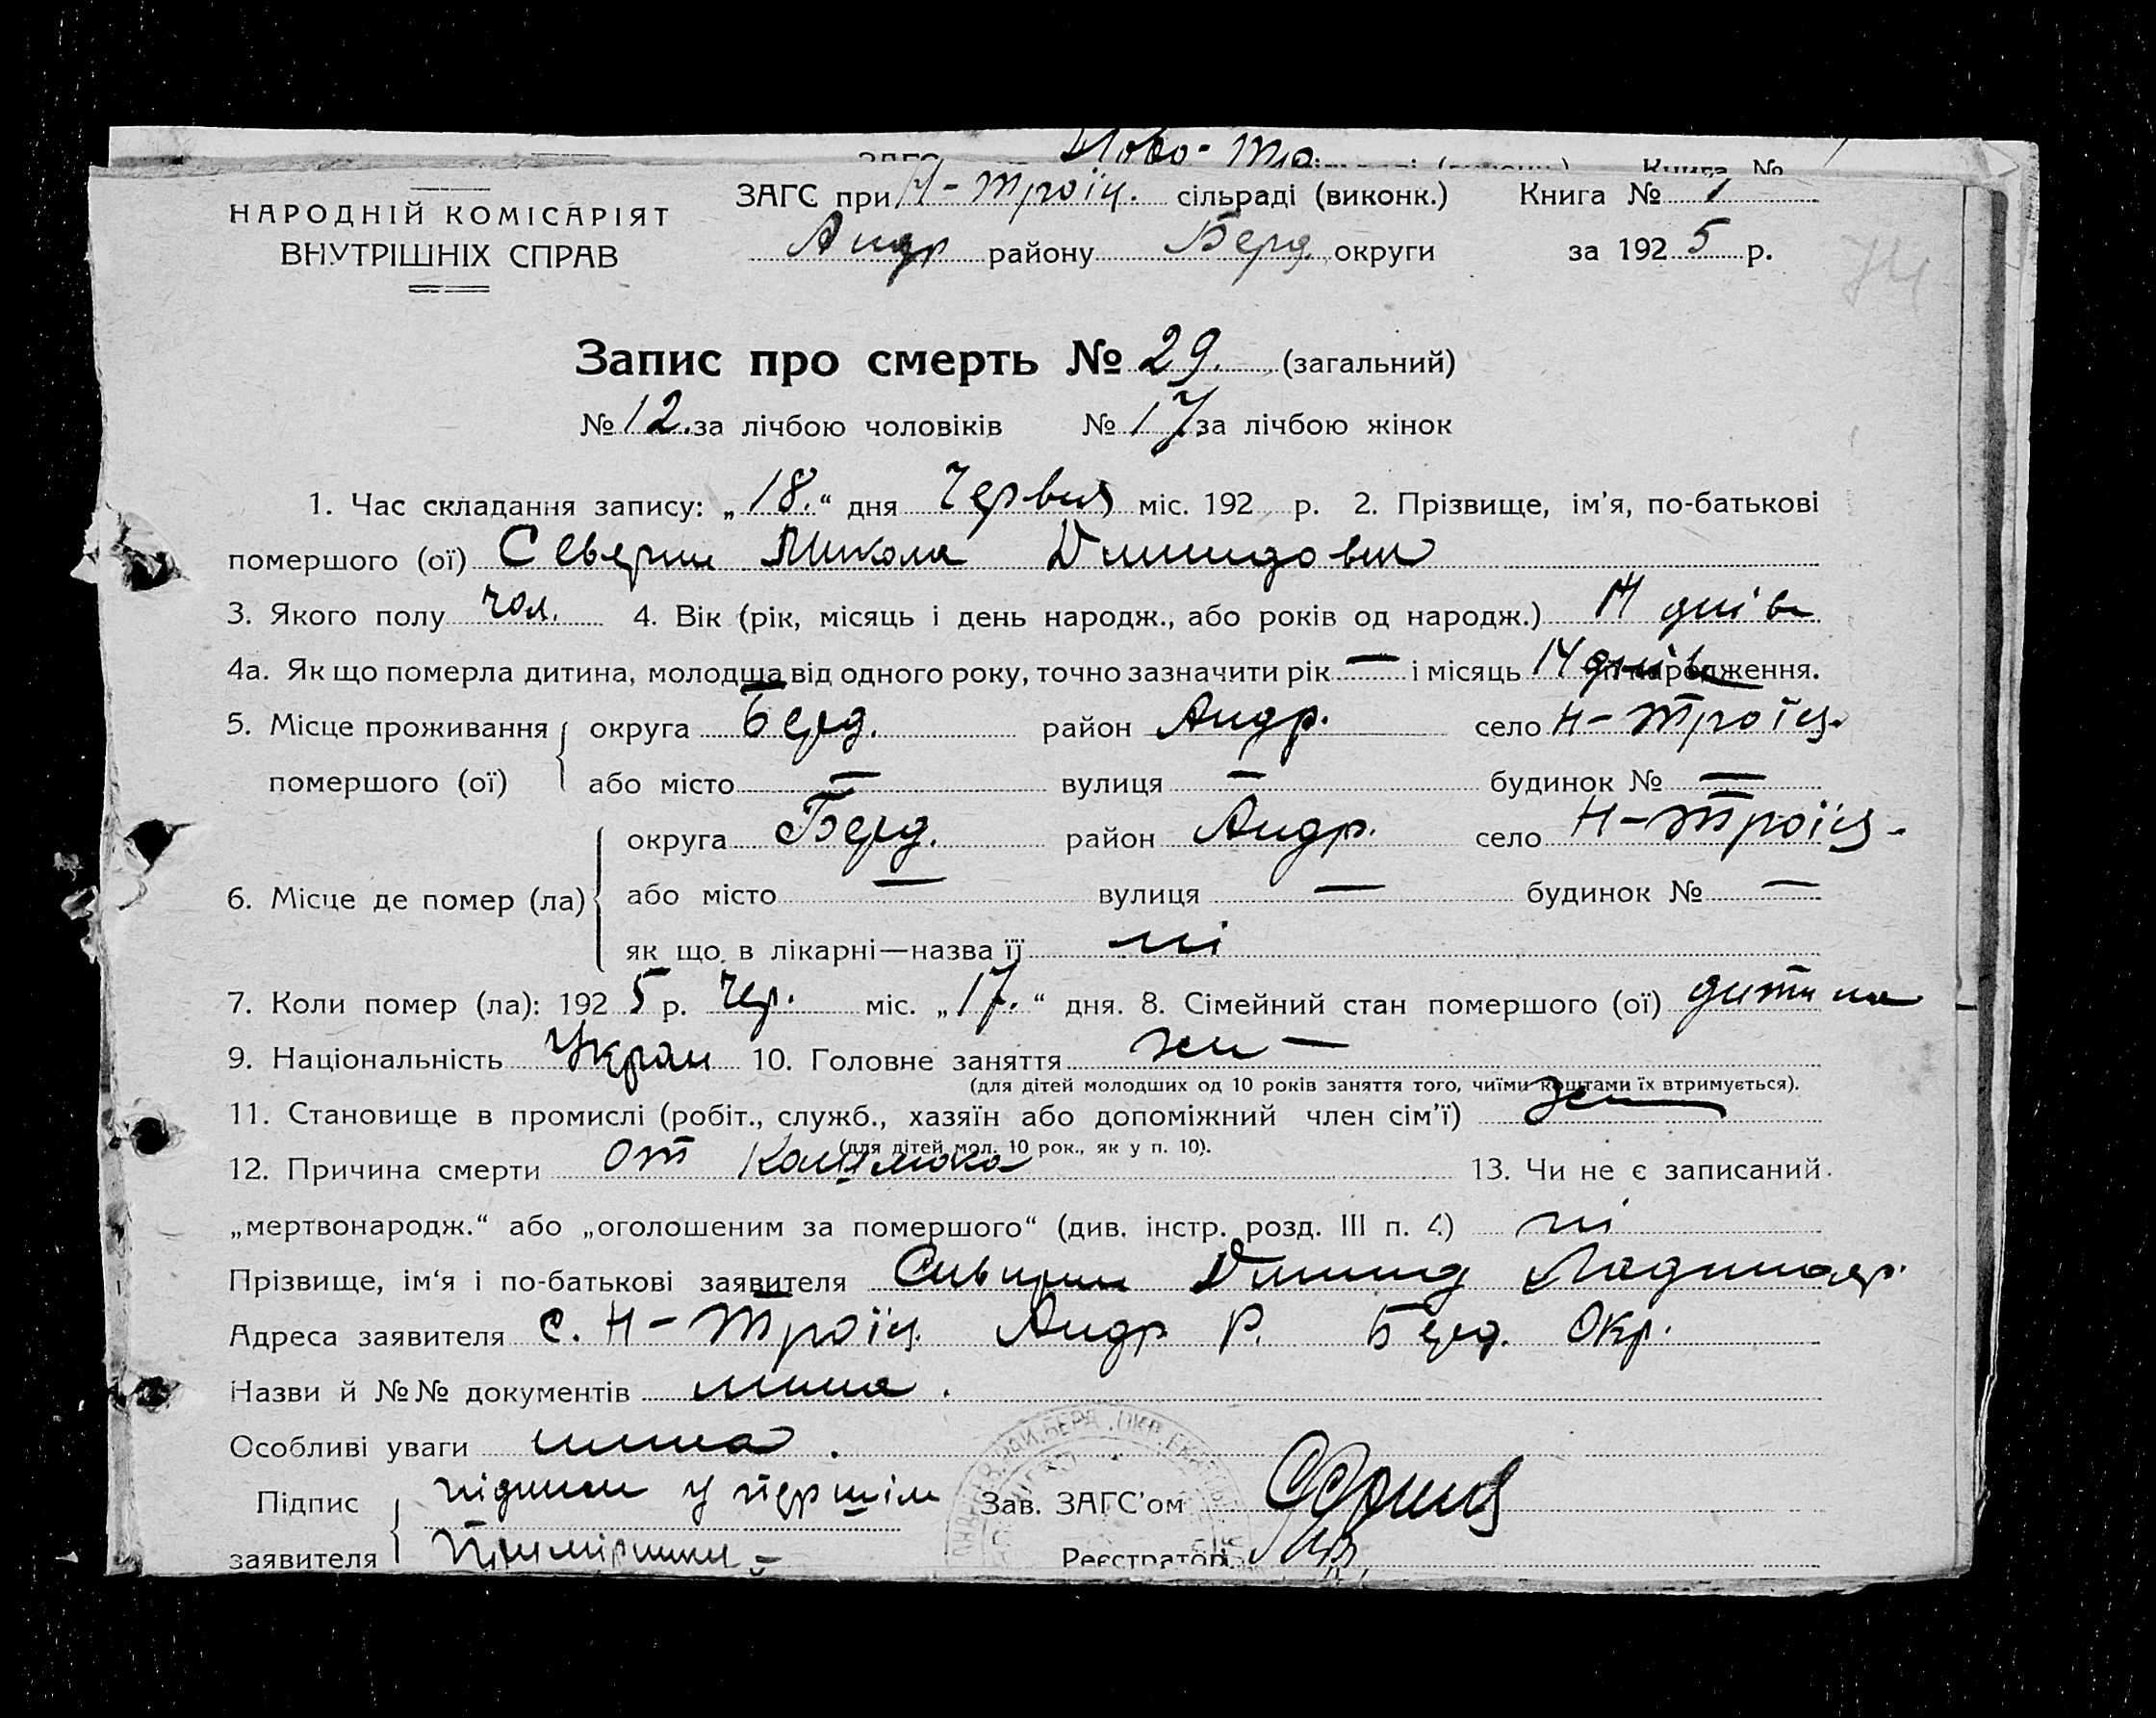 Ново-Тро
Книга №
НАРОДНІЙ КОМІСАРІЯТ
ВНУТРІШНІХ СПРАВ
ЗАГС при Н-Троїц. сільраді (виконк.) Книга № 1
Андр району Берд. округи за 1925 р.
74
Запис про смерть № 29. (загальний)
№ 12. за лічбою чоловіків № 17 за лічбою жінок
1. Час складання запису: „18.“ дня Червня міс. 192 р. 2. Прізвище, ім’я, по-батькові
помершого (ої) Северин Микола Диминдович
3. Якого полу чол. 4. Вік (рік, місяць і день народж., або років од народж.) 14 днів
4а. Як що померла дитина, молодша від одного року, точно зазначити рік — і місяць 14 днів народження.
5. Місце проживання округа Берд. район Андр. село Н-Троїц.
помершого (ої) або місто — вулиця — будинок № —
округа Берд. район Андр. село Н-Троїц.
6. Місце де помер (ла) або місто — вулиця — будинок № —
як що в лікарні—назва її ні
7. Коли помер (ла): 1925 р. Чер. міс. „17.“ дня. 8. Сімейний стан помершого (ої) дитина
9. Національність Украін 10. Головне заняття —
(для дітей молодших од 10 років заняття того, чиїми коштами їх втримується).
11. Становище в промислі (робіт., служб., хазяїн або допоміжний член сім’ї)
(для дітей мол. 10 рок., як у п. 10).
12. Причина смерти От Кашлюка 13. Чи не є записаний
„мертвонародж.“ або „оголошеним за помершого“ (див. інстр. розд. III п. 4) ні
Прізвище, ім‘я і по-батькові заявителя
Адреса заявителя с. Н-Троїц. Андр Р. Берд. Окр.
Назви й №№ документів нима.
Особливі уваги нима.
Підпис підписи у першім Зав. ЗАГС’ом
заявителя Примірнику - Реєстратор